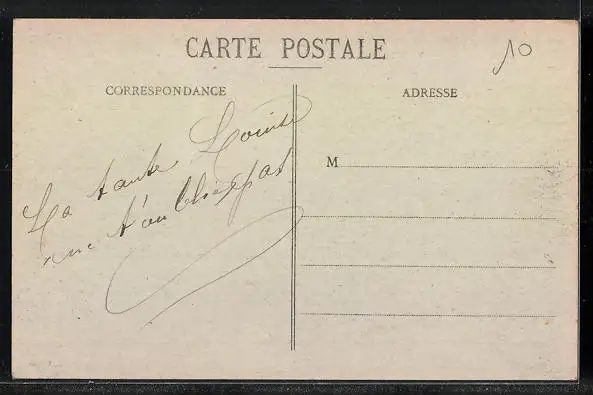 CARTE POSTALE
10
CORRESPONDANCE
ADRESSE
La tante Louise
ne t'oublie pas
M